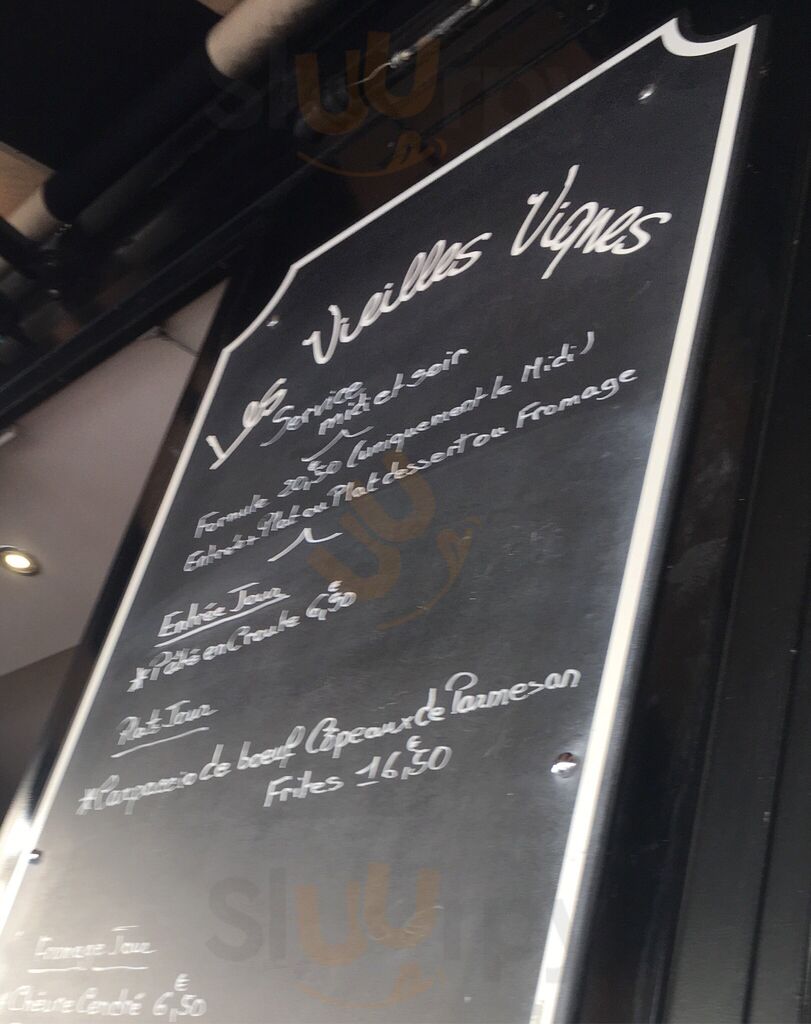 Sluurpy
Les Vieilles Vignes
Service
midi et soir
Formule 20,50€ (uniquement le Midi)
Entrée x Plat ou Plat dessert ou Fromage
Entrée Jour
*Pâté en Croute 6,50€
Plat Jour
*Carpaccio de boeuf Côpeaux de Parmesan
Frites 16,50€
Sluurpy
Fromage Jour
*Chèvre Cendré 6,50€